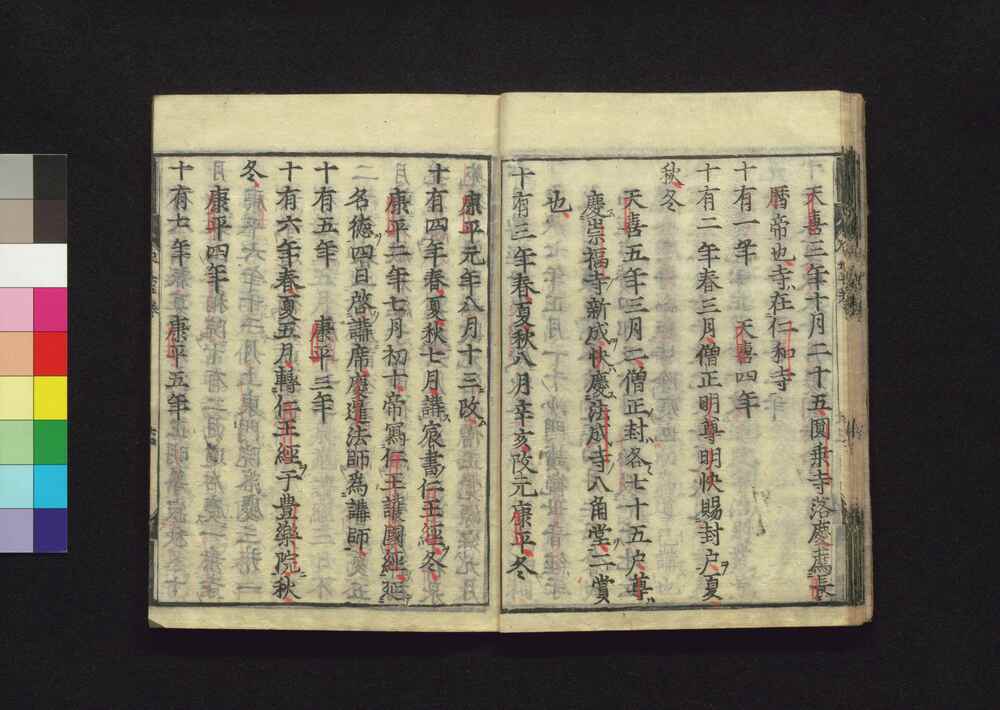 天喜三年十月二十五圓乗寺落慶薦長
暦帝也寺在仁和寺
十有一年 天喜四年
十有二年春三月僧正明尊明快賜封户夏
秋冬
天喜五年三月二僧正封各七十五户尊
慶崇福寺新成快慶法成寺八角堂二賞
也
十有三年春夏秋八月辛亥改元康平冬
康平元年八月十三改
十有四年春夏秋七月講宸書仁王經冬
康平二年七月初十帝寫仁王護國經延
名徳四日啓講席慶暹法師爲講師
十有五年 康平三年
十有六年春夏五月轉仁王經于豊樂院秋
冬
康平四年
十有七年 康平五年